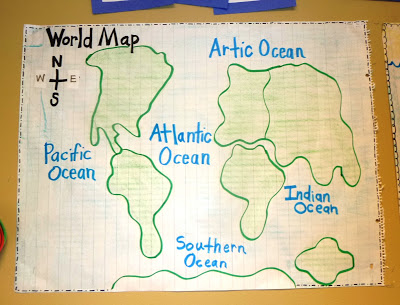 World Map
N
W E
S
Artic Ocean
Atlantic
Ocean
Pacific
Ocean
Indian
Ocean
Southern
Ocean